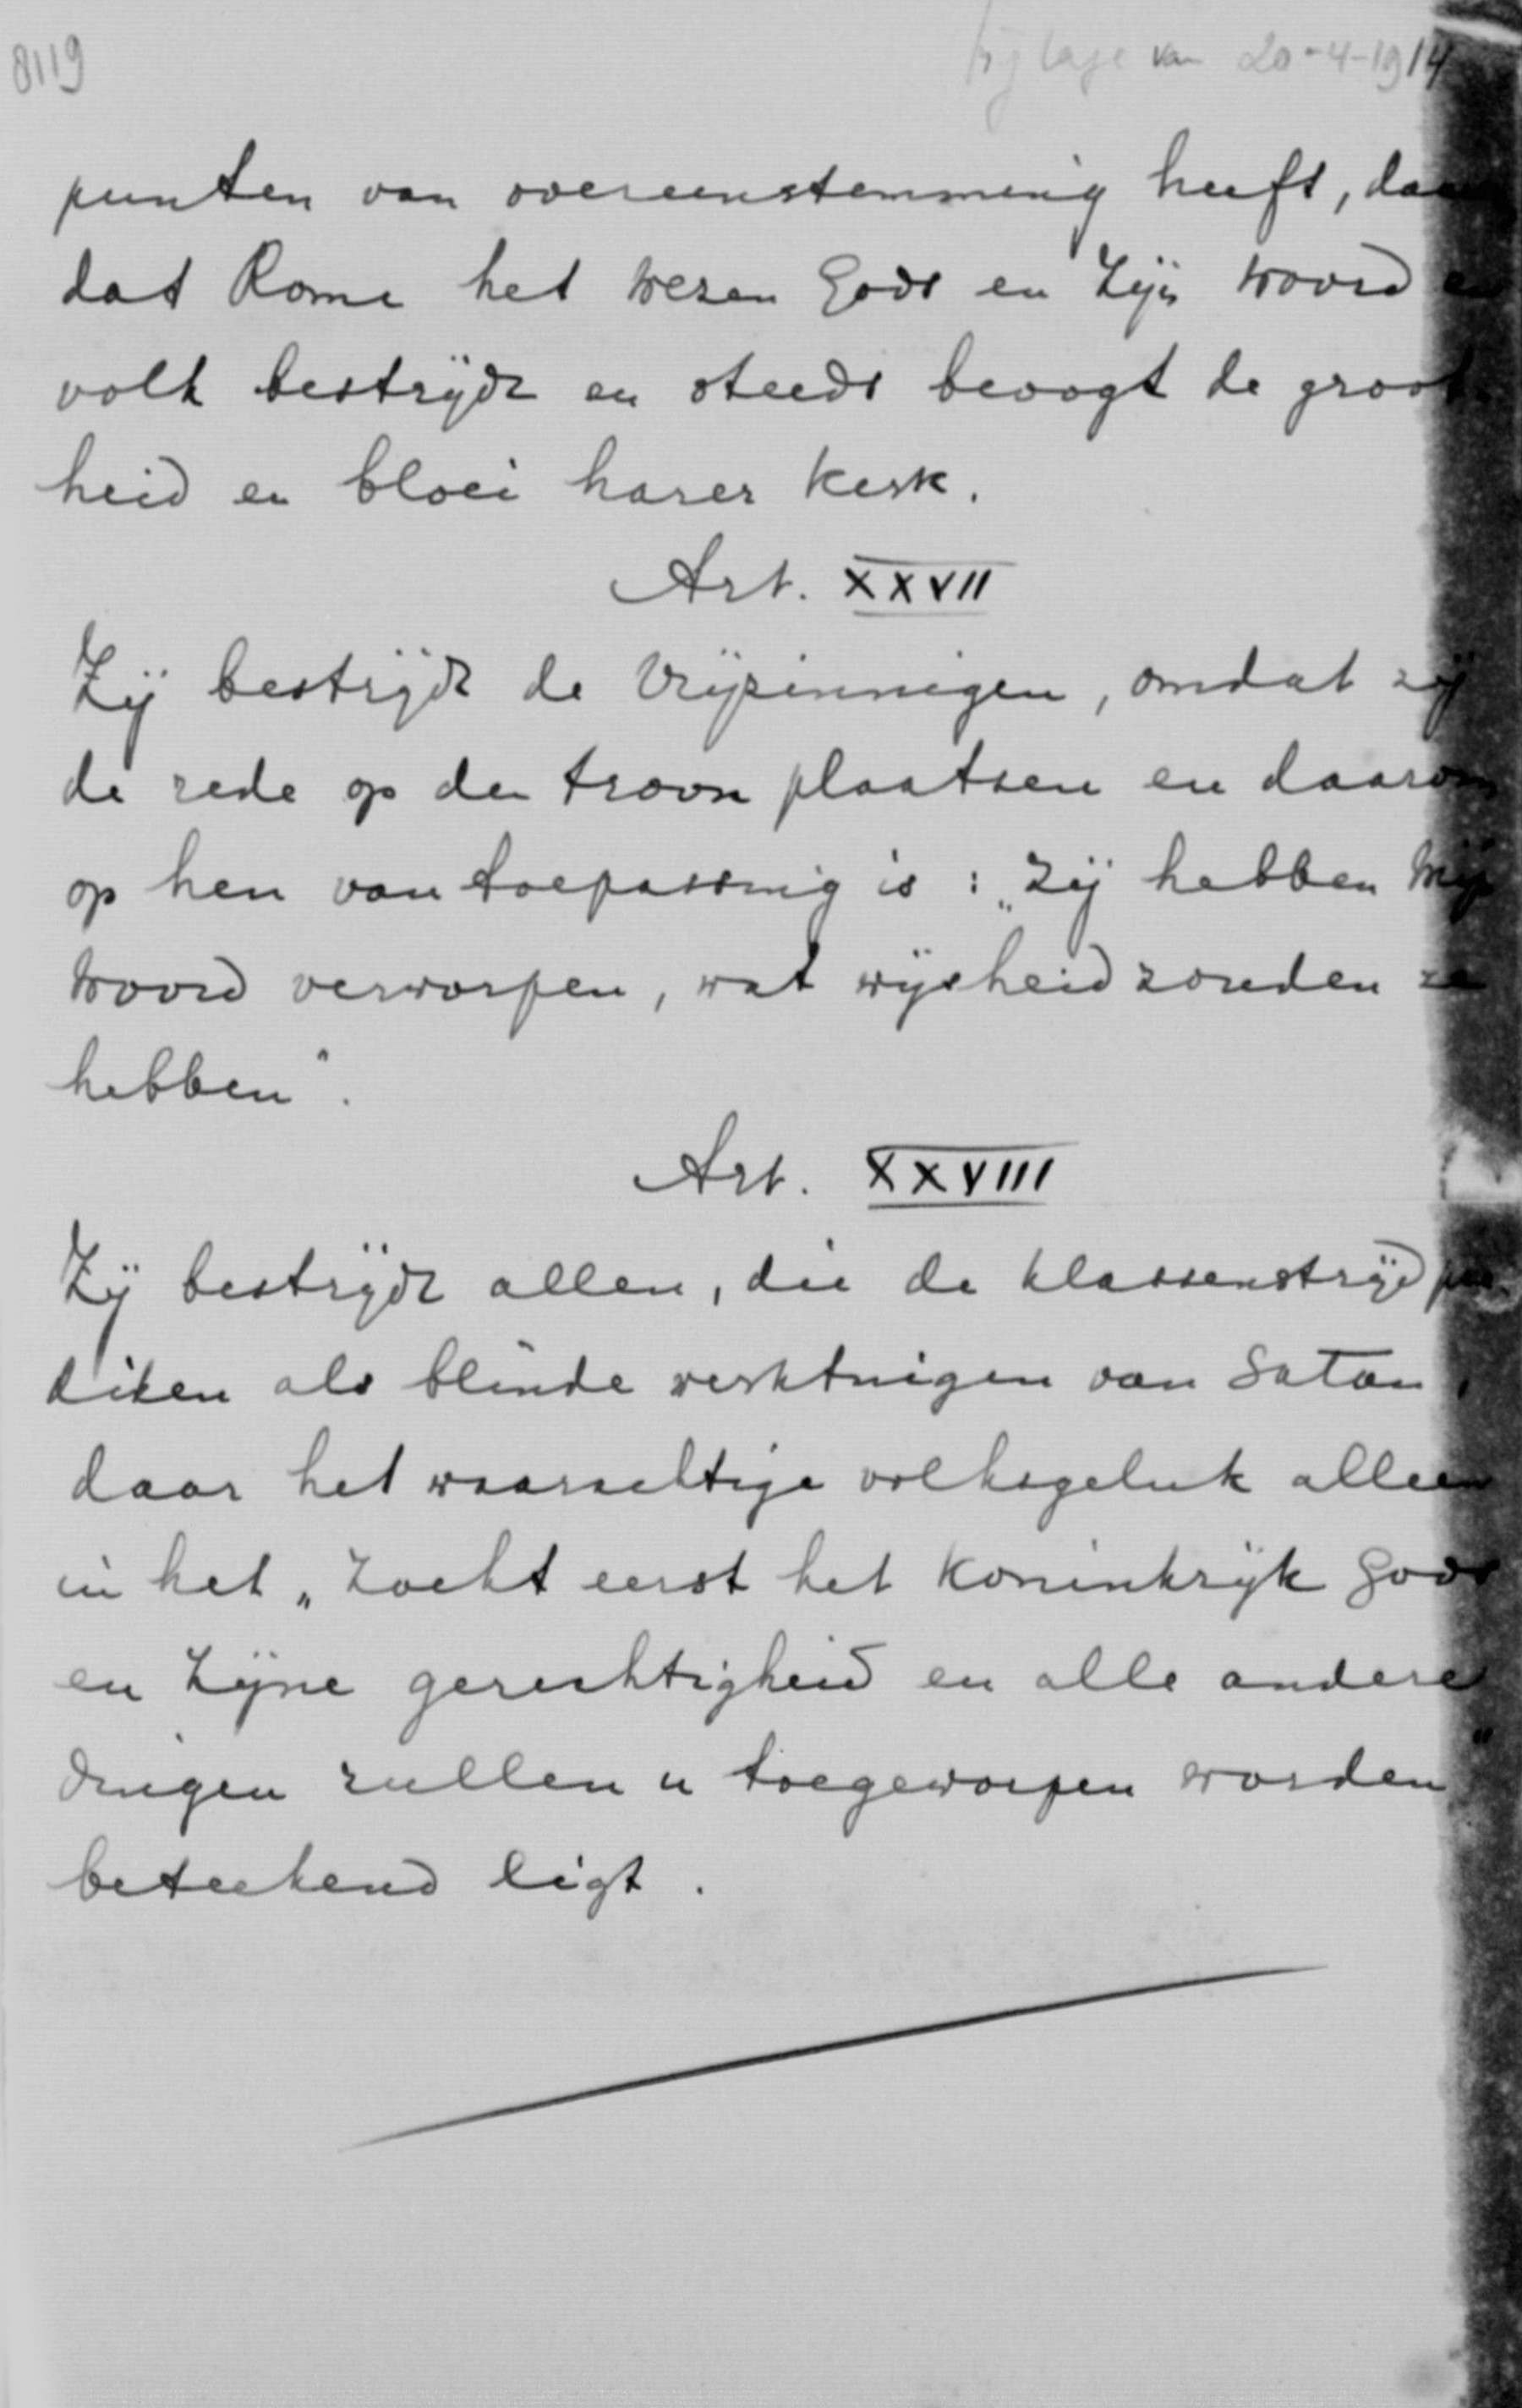 8119
bijlage van 20-4-1914
punten van overeenstemming heeft, daar
dat Rome het Wezen Gods en Zijn Woord en
volk bestrijdt en steeds beoogt de groot-
heid en bloei harer Kerk.
Art. XXVII
Zij bestrijdt de Vrijzinnigen, omdat zij
de rede op den troon plaatsen en daarom
op hen van toepassing is: „Zij hebben Mijn
Woord verworpen, wat wijsheid zouden ze
hebben".
Art. XXVIII
Zij bestrijdt allen, die de klassenstrijd pre-
diken als blinde werktuigen van Satan,
daar het waarachtige volksgeluk alleen
in het „Zoekt eerst het Koninkrijk Gods
en Zijne gerechtigheid en alle andere
dingen zullen u toegeworpen worden"
beteekend ligt.